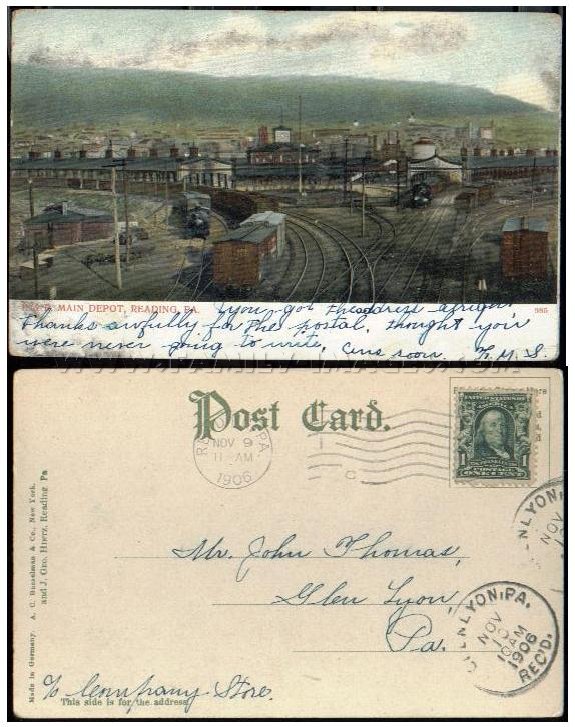 MAIN DEPOT, READING, PA.
you got the address alright
985
Thanks awfully for the postal, thought you
were never going to write.
Ans soon. F.M.S.
WWW.FAMILY-IMAGES.COM
Post Card.
PA.
NOV 9
11-AM
1906
UNITED STATES OF
1
POSTAGE
ONE CENT
Mr. John Thomas,
Glen Lyon,
Pa.
NLYON,
NOV
LYON, PA.
NOV
10
10 AM
1906
REC'D.
c/o Company Store.
This side is for the address
Made in Germany. A. C. Bosselman & Co., New York.
and J. Geo. Hintz, Reading Pa